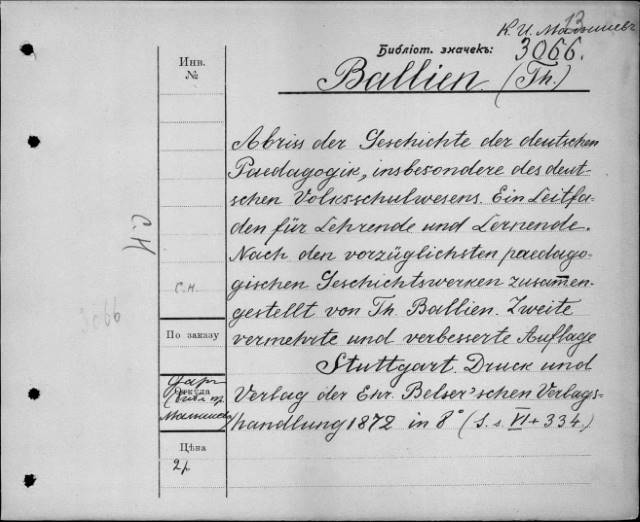 13
К. И.
Библіот. значекъ: 3066.
Ballien (Th.)
Инв.
№
Abriss der Geschichte der deutschen
Paedagogik, insbesondere des deut-
schen Volksschulwesens. Ein Leitfa-
den für Lehrende und Lernende.
Nach den vorzüglichsten paedago-
gischen Geschichtswerken zusammen-
gestellt von Th. Ballien. Zweite
vermehrte und verbesserte Auflage
Stuttgart. Druck und
Verlag der Chr. Belser'schen Verlags-
handlung 1872 in 8° (S. s. VI + 334.)
С.Н
с.н.
3066
По заказу
Откуда
Цѣна
2р